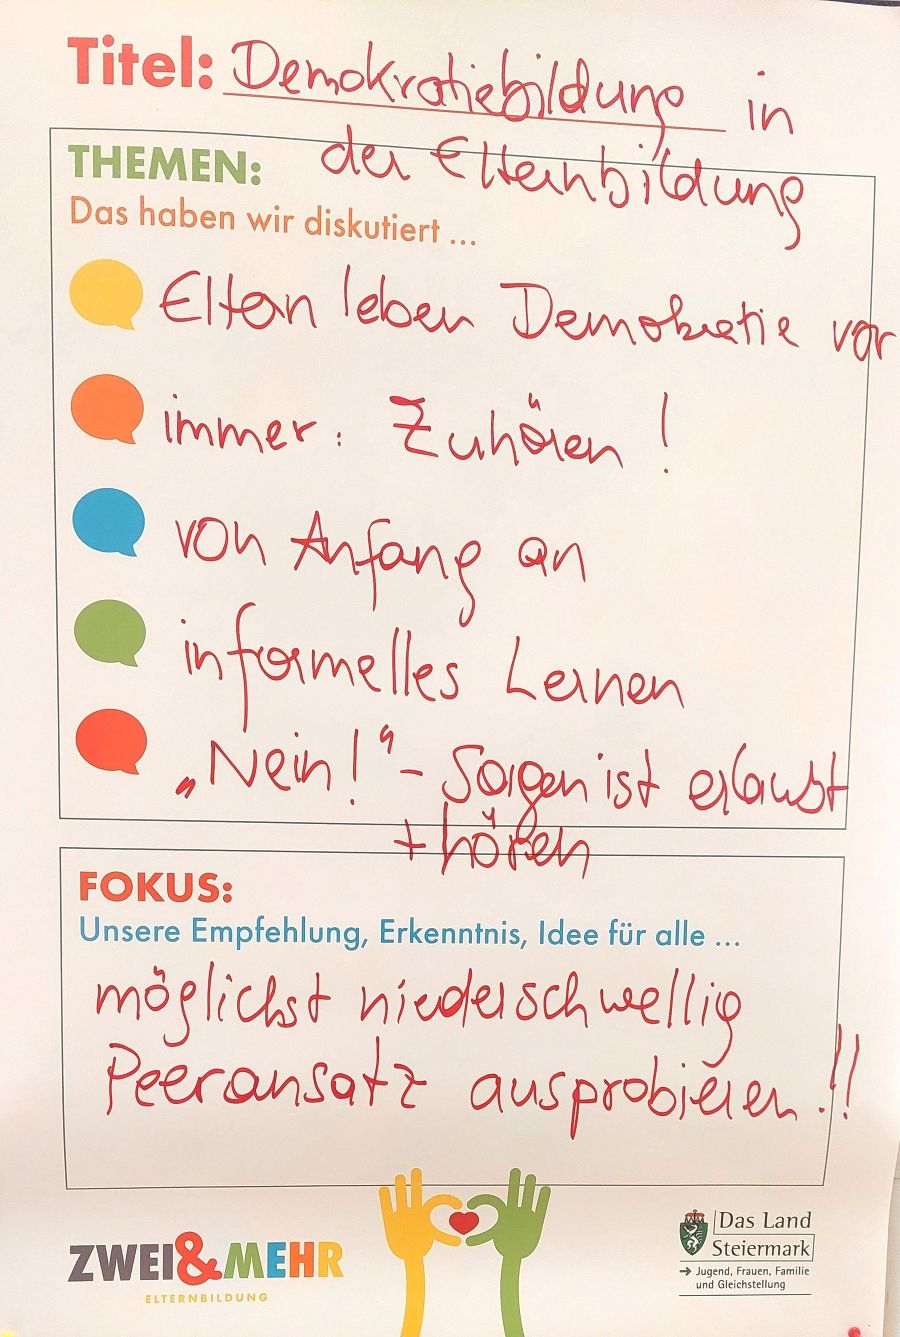 Titel: Demokratiebildung in
der Elternbildung
THEMEN:
Das haben wir diskutiert ...
Eltern leben Demokratie vor
immer: Zuhören!
von Anfang an
informelles Lernen
„Nein!“ - Sagen ist erlaubt
+ hören
FOKUS:
Unsere Empfehlung, Erkenntnis, Idee für alle ...
möglichst niederschwellig
Peeransatz ausprobieren!!
ZWEI&MEHR
ELTERNBILDUNG
Das Land
Steiermark
→ Jugend, Frauen, Familie
und Gleichstellung